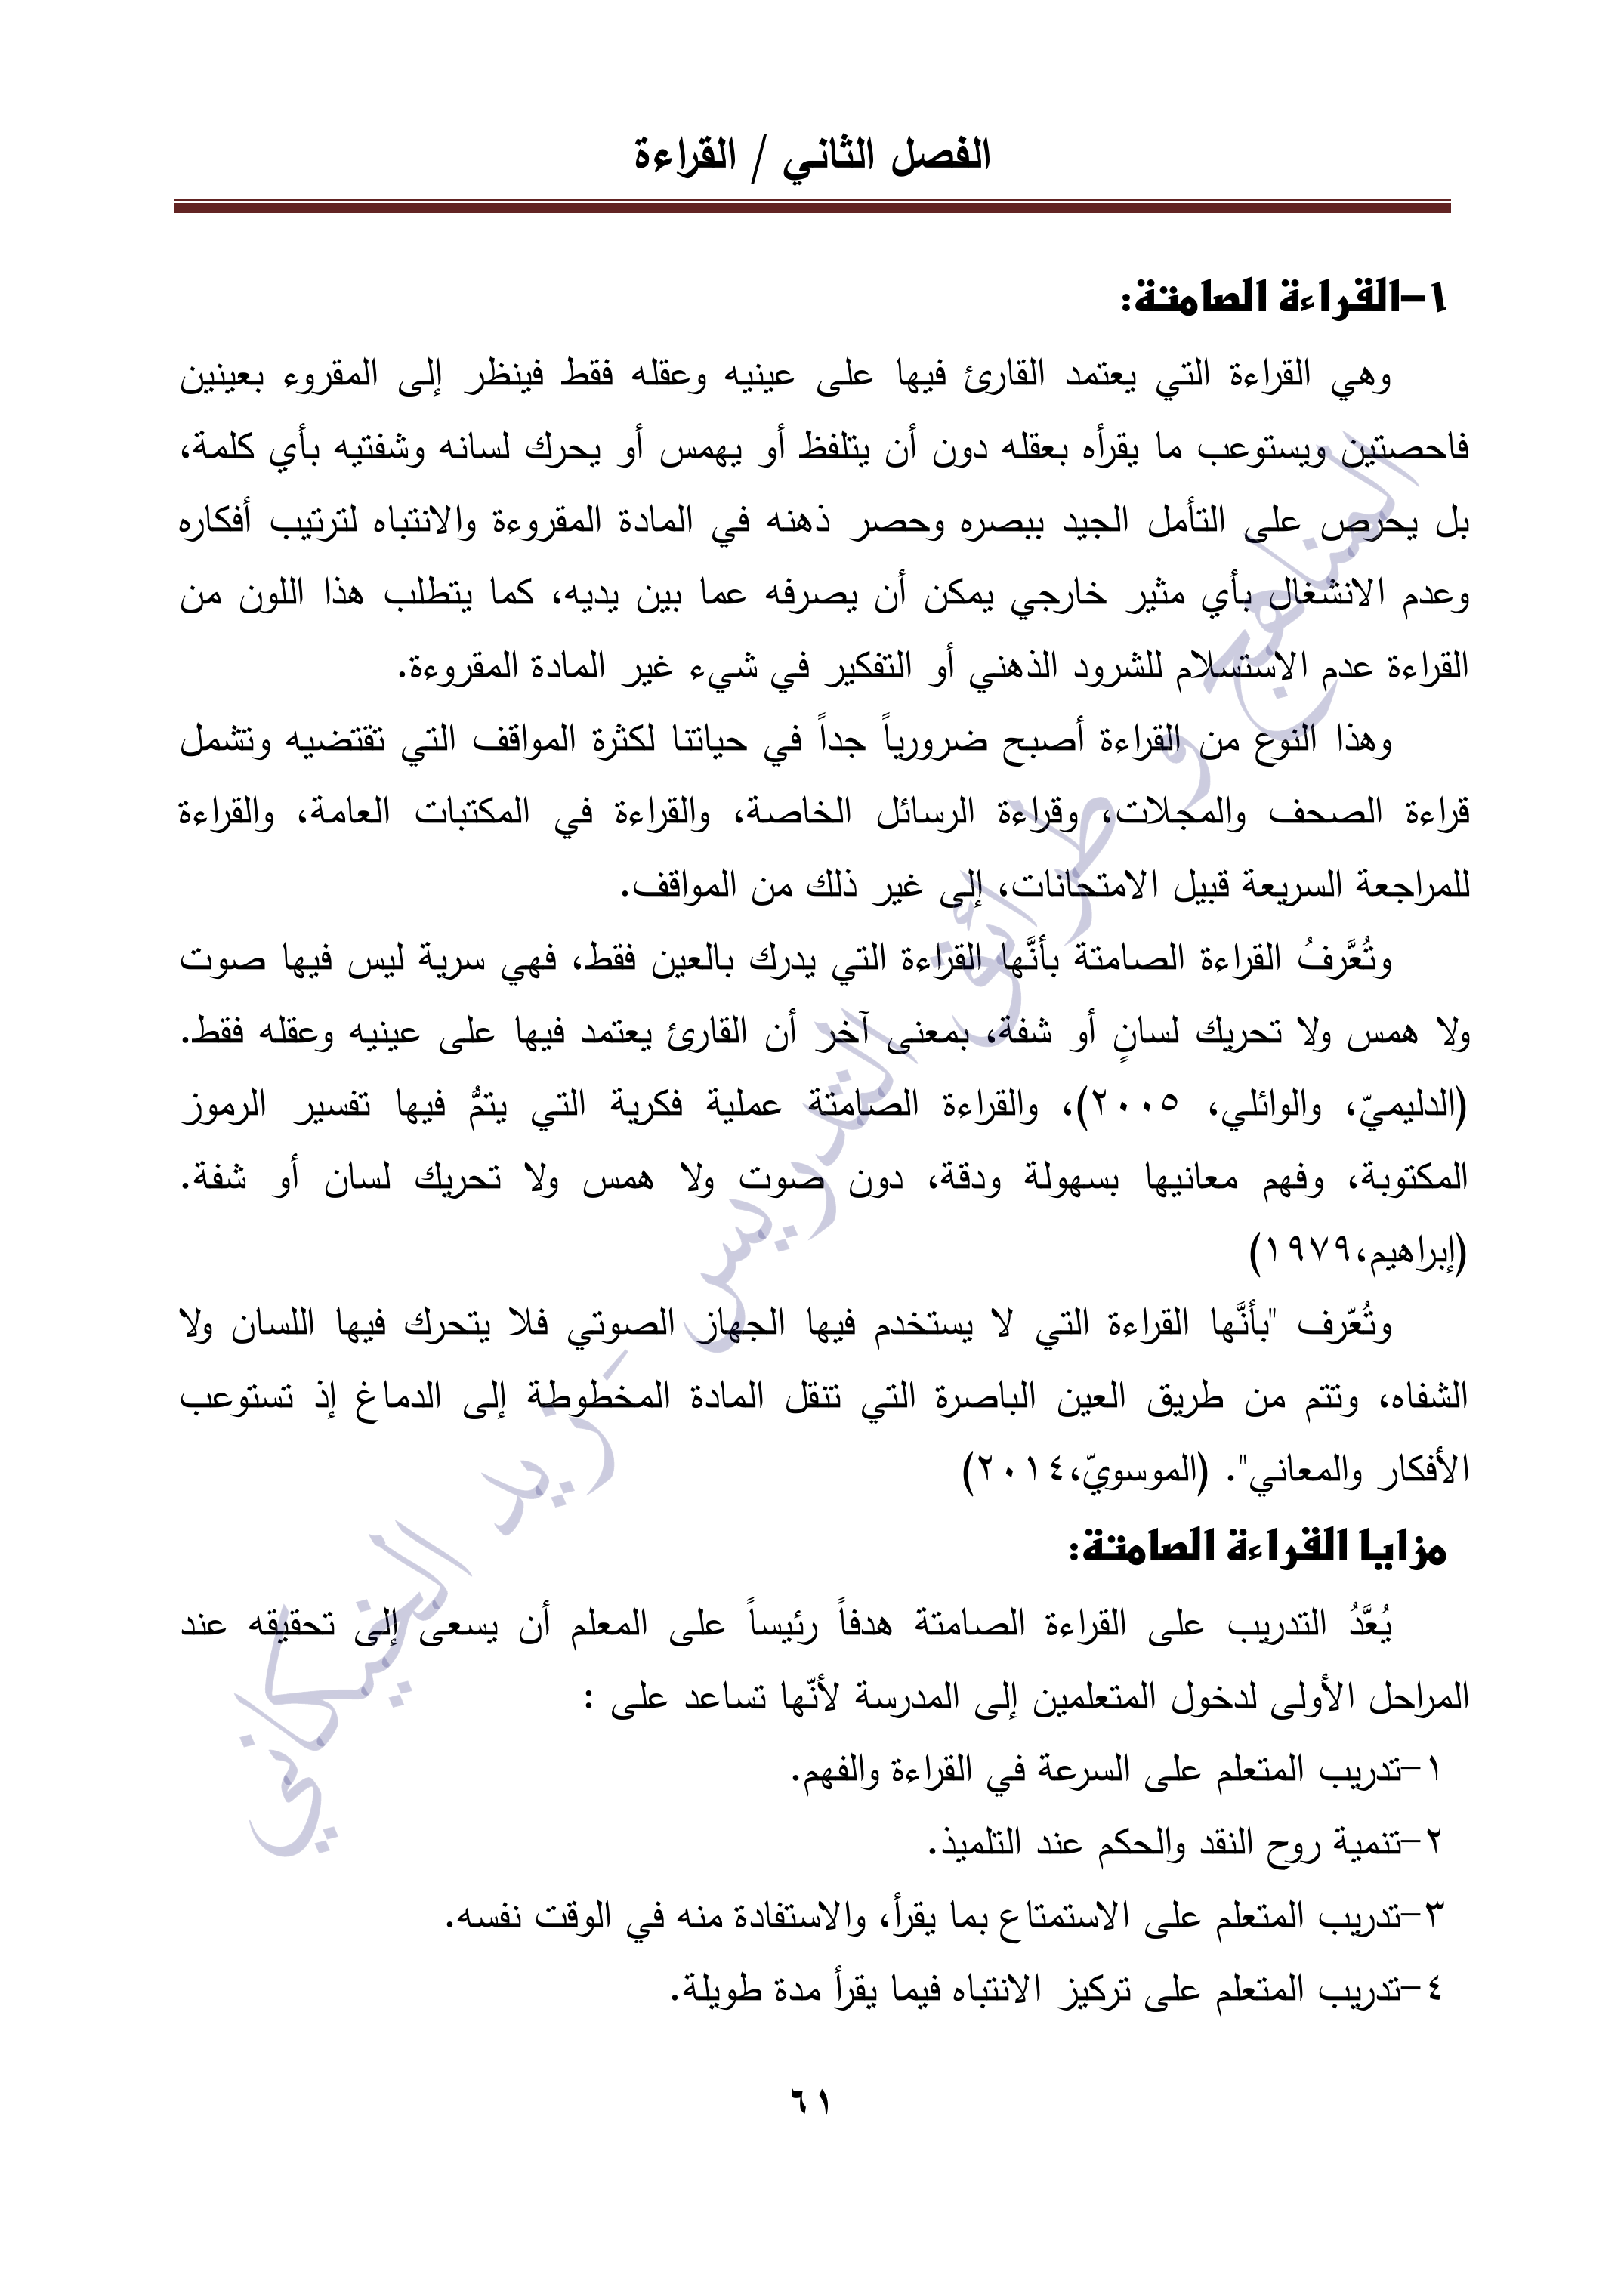 الفصل الثاني / القراءة
١-القراءة الصامتة:
وهي القراءة التي يعتمد القارئ فيها على عينيه وعقله فقط فينظر إلى المقروء بعينين
فاحصتين ويستوعب ما يقرأه بعقله دون أن يتلفظ أو يهمس أو يحرك لسانه وشفتيه بأي كلمة،
بل يحرص على التأمل الجيد ببصره وحصر ذهنه في المادة المقروءة والانتباه لترتيب أفكاره
وعدم الانشغال بأي مثير خارجي يمكن أن يصرفه عما بين يديه، كما يتطلب هذا اللون من
القراءة عدم الاستسلام للشرود الذهني أو التفكير في شيء غير المادة المقروءة.
وهذا النوع من القراءة أصبح ضرورياً جداً في حياتنا لكثرة المواقف التي تقتضيه وتشمل
قراءة الصحف والمجلات، وقراءة الرسائل الخاصة، والقراءة في المكتبات العامة، والقراءة
للمراجعة السريعة قبيل الامتحانات، إلى غير ذلك من المواقف.
وتُعَّرفُ القراءة الصامتة بأنَّها القراءة التي يدرك بالعين فقط، فهي سرية ليس فيها صوت
ولا همس ولا تحريك لسانٍ أو شفة، بمعنى آخر أن القارئ يعتمد فيها على عينيه وعقله فقط.
(الدليميّ، والوائلي، ٢٠٠٥)، والقراءة الصامتة عملية فكرية التي يتمُّ فيها تفسير الرموز
المكتوبة، وفهم معانيها بسهولة ودقة، دون صوت ولا همس ولا تحريك لسان أو شفة.
(إبراهيم،١٩٧٩)
وتُعّرف "بأنَّها القراءة التي لا يستخدم فيها الجهاز الصوتي فلا يتحرك فيها اللسان ولا
الشفاه، وتتم من طريق العين الباصرة التي تنقل المادة المخطوطة إلى الدماغ إذ تستوعب
الأفكار والمعاني". (الموسويّ،٢٠١٤)
مزايا القراءة الصامتة:
يُعَّدُ التدريب على القراءة الصامتة هدفاً رئيساً على المعلم أن يسعى إلى تحقيقه عند
المراحل الأولى لدخول المتعلمين إلى المدرسة لأنّها تساعد على :
١-تدريب المتعلم على السرعة في القراءة والفهم.
٢-تنمية روح النقد والحكم عند التلميذ.
٣-تدريب المتعلم على الاستمتاع بما يقرأ، والاستفادة منه في الوقت نفسه.
٤-تدريب المتعلم على تركيز الانتباه فيما يقرأ مدة طويلة.
٦١
المناهج و طرائق التدريس - زيد الخيكاني